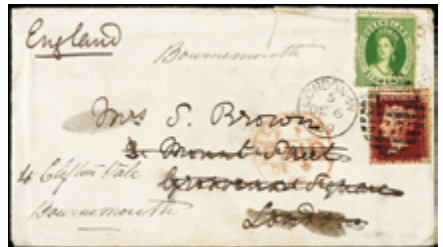 England
Bournemouth
LONDON-W
5
DE 6
Mrs S. Brown
3. Mount Street
Grosvenor Square
London
4 Clifton Vale
Bournemouth